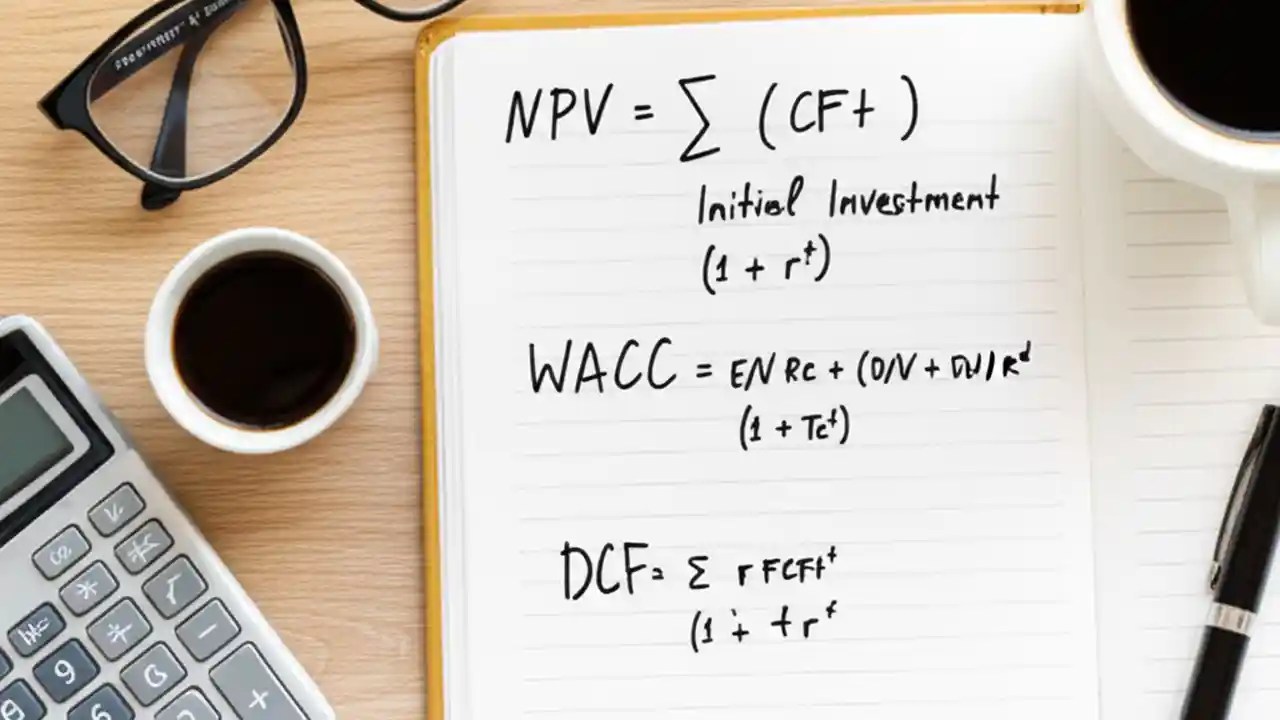 NPV = ∑ (CFt)
Initial Investment
(1 + r^t)
WACC = E/V Rc +
(1 + Tc^t)
DCF = Σ r FCFt^t
(1 + + r^t
9
8
6
+
−
√